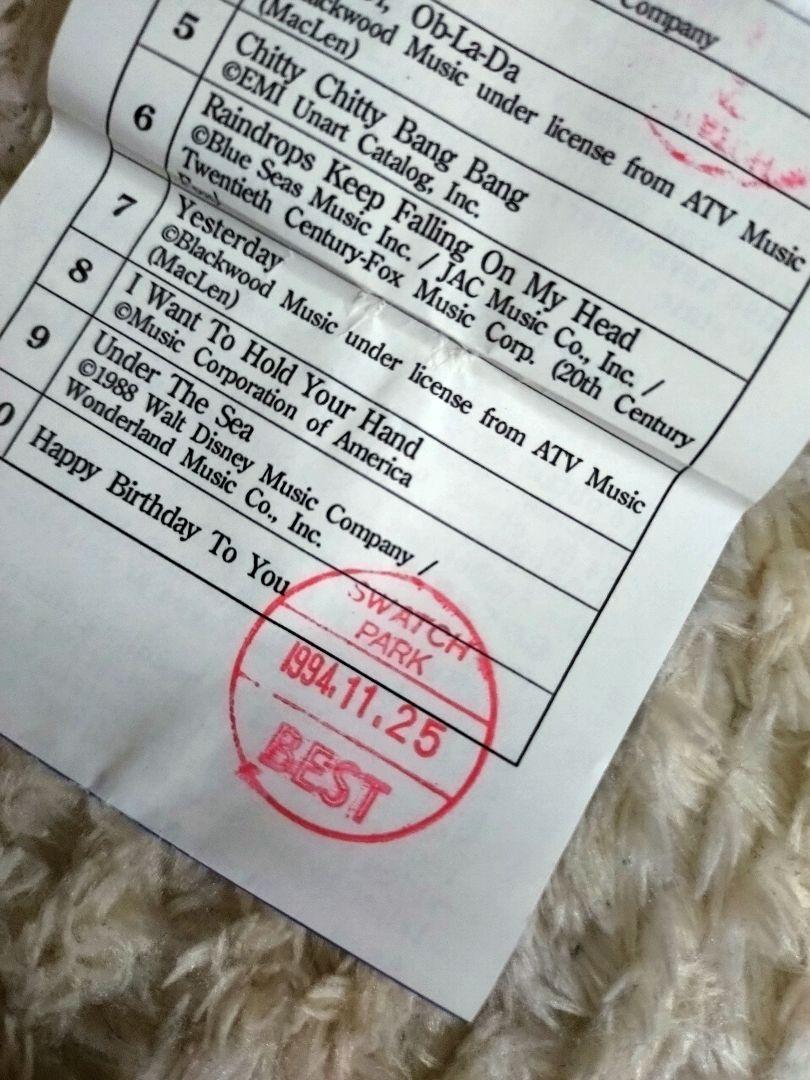 Company
Ob-La-Da
Blackwood Music under license from ATV Music
(MacLen)
5
Chitty Chitty Bang Bang
©EMI Unart Catalog, Inc.
6
Raindrops Keep Falling On My Head
©Blue Seas Music Inc. / JAC Music Co., Inc. /
Twentieth Century-Fox Music Corp. (20th Century
7
Yesterday
©Blackwood Music under license from ATV Music
(MacLen)
8
I Want To Hold Your Hand
©Music Corporation of America
9
Under The Sea
©1988 Walt Disney Music Company /
Wonderland Music Co., Inc.
0
Happy Birthday To You
SWATCH
PARK
1994.11.25
BEST